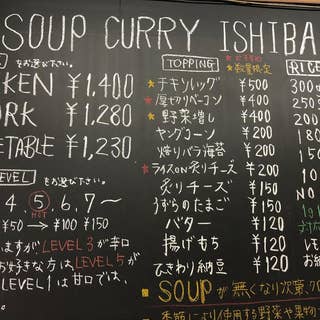 SOUP CURRY ISHIBA
をお選び下さい。
KEN ¥1,400
RK ¥1,280
ETABLE ¥1,230
LEVEL をお選び下さい。
4. 5. 6. 7〜
HOT
¥50 → ¥100 ¥150
ますが、LEVEL 3が辛口
お好きな方は、LEVEL 5が
LEVEL 1は甘口では、
TOPPING
数量限定
★チキンレッグ ¥500
★厚切りベーコン ¥400
★野菜増し ¥400
ヤングコーン ¥200
焼りバラ海苔 ¥200
★ライスON炙りチーズ ¥200
炙りチーズ ¥150
うずらのたまご ¥150
バター ¥120
揚げもち ¥120
ひきわり納豆 ¥120
RICE
300
250
200
150
お
SOUPが無くなり次第、クロ
季節により使用する野菜や果物